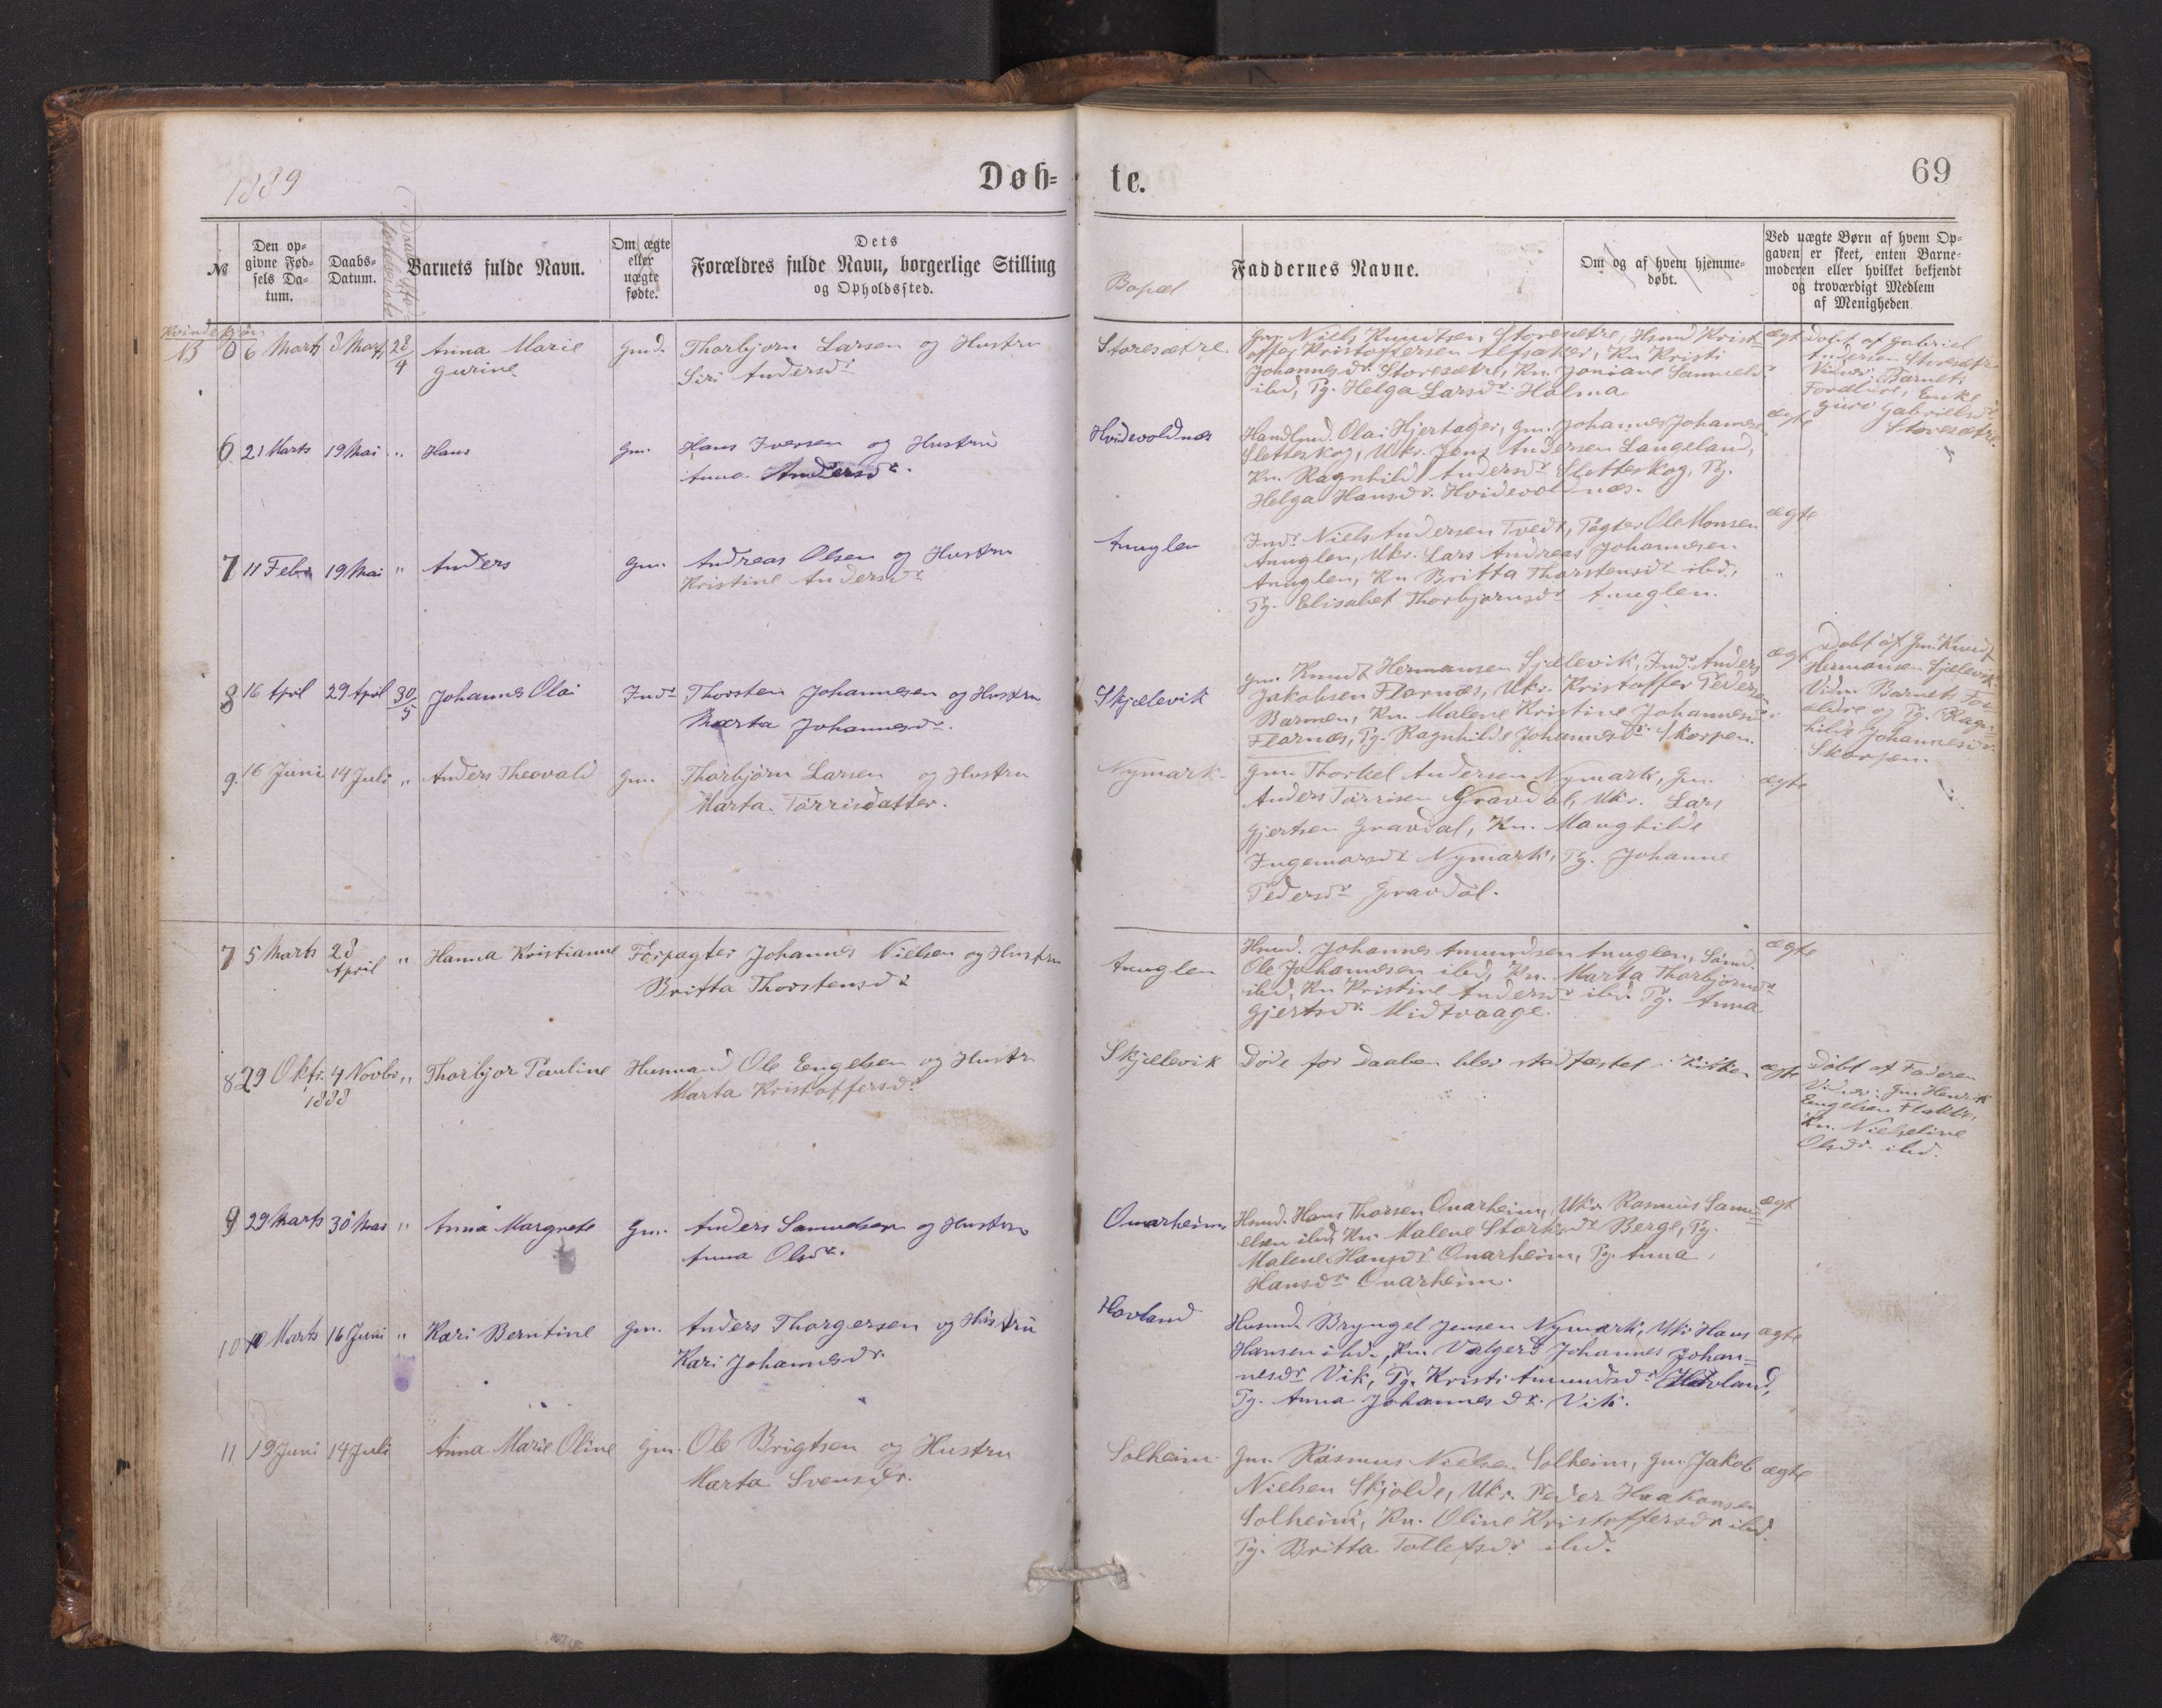 1889
Døb-
te.
69
№
Den op-
givne Fød-
sels Da-
tum.
Daabs-
Datum.
Barnets fulde Navn.
Om ægte
eller
uægte
fødte.
Dets
Forældres fulde Navn, borgerlige Stilling
og Opholdssted.
Bopæl
Faddernes Navne.
Om og af hvem hjemme-
døbt.
Ved uægte Børn af hvem Op-
gaven er skeet, enten Barne-
moderen eller hvilket bekjendt
og troværdigt Medlem
af Menigheden.
Kvindekjøn
6 6 Marts 8 Marts 28/4 Anna Marie
Gurine
Gmd. Thorbjørn Larsen og Hustru
Siri Andersdr
Storesætre
Gm. Niels Knudtsen, Storesætre, Husmd Krist-
offer Kristoffersen, Kn Kristi
Johannesdr. Storesætre, Kn. Joniane Samuelsdr
ibd, Pg. Helga Larsdr Holma
ægt
Døbt af Gabriel
Andersen Storesætre
Vidner: Barnets
Forældre, Enke
Guro Gabrielsdr
Storesætre.
6 21 Marts 19 Mai " Hans Gm. Hans Iversen og Hustru
Anna Andersdr.
Hvidevoldnæs
Handlmd. Olai Hjertager, Gm. Johannes Johannesen
Sletteskog, Ukr. Jens Andersen Langeland,
Kn. Ragnhild Andersdr Sletteskog, Pg.
Helga Hansdr. Hvidevoldnæs.
ægte
7 11 Febr 19 Mai " Anders Gm. Andreas Olsen og Hustru
Kristine Andersdr
Anuglen
Indr Niels Andersen Tvedt, Pagter Ole Monsen
Anuglen, Ukr. Lars Andreas Johannesen
Anuglen, Kn Britta Thorstensdr ibd,
Pg. Elisabet Thorbjørnsdr Anuglen.
ægte
8 16 April 29 April 30/5 Johannes Olai Indr Thorsten Johannesen og Hustru
Marta Johannesdr.
Skjælevik
Gm. Knudt Hermansen Sjælevik, Indr. Anders
Jakobsen Flornæs, Ukr. Kristoffer Peders
Barmen, Kn. Malene Kristine Johannesdr
Flornæs, Pg. Ragnhilde Johannesdr Skorpen.
ægt
Døbt af Gm. Knudt
Hermansen Sjælevik
Vidn. Barnets For-
ældre og Pg. Ragn-
hilde Johannesdr.
Skorpen.
9. 16 Juni 14 Juli " Anders Theovald Gm. Thorbjørn Larsen og Hustru
Marta Tørrisdatter.
Nymark
Gm. Thorkel Andersen Nymark, Gm.
Anders Tørrisen Gravdal, Ukr. Lars
Gjertsen Gravdal, Kn. Maughilde
Ingemarsdr Nymark, Pg. Johanne
Pedersdr Gravdal.
ægte
7 5 Marts 28
April " Hanna Kristianne Forpagter Johannes Nielsen og Hustru
Britta Thorstensdr
Anuglen
Husmd. Johannes Amundsen Anuglen,
Ole Johannesen ibd, Kn. Marta Thorbjørnsdr
ibd, Kn Kristine Andersdr ibd. Pg. Anna
Gjertsdr. Midtvaage.
ægte
8 29 Oktr. 4 Novbr " Thorbjor Pauline Husmand Ole Engelsen og Hustr
1888
Marta Kristoffersdr
Skjælevik
Døde før Daaben blev stadfæstet i Kirken
ægte
Døbt af Faderen
Vidner: Gm Henrik
Engelsen
Kn. Nielseline
Olsdr. ibd.
9 29 Marts 30 Mai " Anna Margrete Gm. Anders Samuelsen og Hustru
Anna Olsdr.
Onarheim
Husmd. Hans Thorsen Onarheim, Ukr. Rasmus Samu-
elsen ibd, Kn. Malene Storksdr Berge, Pg.
Malene Hansdr Onarheim, Pg. Anna
Hansdr Onarheim.
ægt
10 10 Marts 16 Juni " Kari Berntine Gm. Anders Thorgersen og Hustru
Kari Johannesdr.
Hovland
Husmd. Bryngel Jensen Nymark, Ukr Hans
Hansen ibd., Kn. Valgerd Johannes Johan-
nesdr Vik, Pg. Kristi Amundsdr Hovland,
Pg. Anna Johannesdr. Vik.
ægte
11 19 Juni 14 Juli Anna Marie Oline Gm. Ole Brigtsen og Hustru
Marta Svensdr.
Solheim
Gm. Rasmus Nielsen Solheim, Gm. Jakob
Nielsen Skjolde, Ukr. Peder Haakonsen
Solheim, Kn. Oline Kristoffersdr ibd.
Pg. Britta Tollefsdr ibd.
ægte